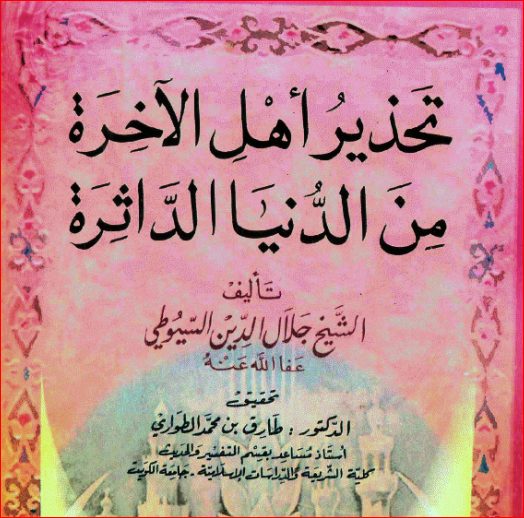 تَحَذيرُ أهْلِ الآخِرَة
مِنَ الدُّنيَا الدَّاثِرَة
تَأليف
الشَّيخ جَلَال الدِّين السّيُوطي
عَفَا اللَّه عَنْهُ
تحقيق
الدكتور : طارق بن محمد الطواري
أستاذ مُسَاعد بقسْم التفسير والحديث
كلية الشريعة والدِّراسَات الإسلاميّة - جَامعَة الكويت